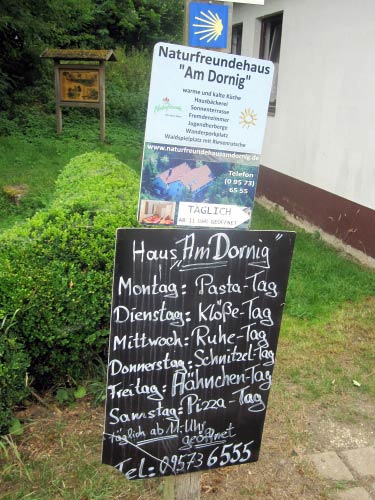 Naturfreundehaus
"Am Dornig"
warme und kalte Küche
Hausbäckerei
Sonnenterrasse
Fremdenzimmer
Jugendherberge
Wanderparkplatz
Waldspielplatz mit Riesenrutsche
www.naturfreundehausamdornig.de
Telefon
(0 95 73)
65 55
TÄGLICH
AB 11 UHR GEÖFFNET
Haus "Am Dornig"
Montag: Pasta-Tag
Dienstag: Klöße-Tag
Mittwoch: Ruhe-Tag
Donnerstag: Schnitzel-Tag
Freitag: Hähnchen-Tag
Samstag: Pizza-Tag
täglich ab 11. Uhr
geöffnet
Tel: 09573 6555